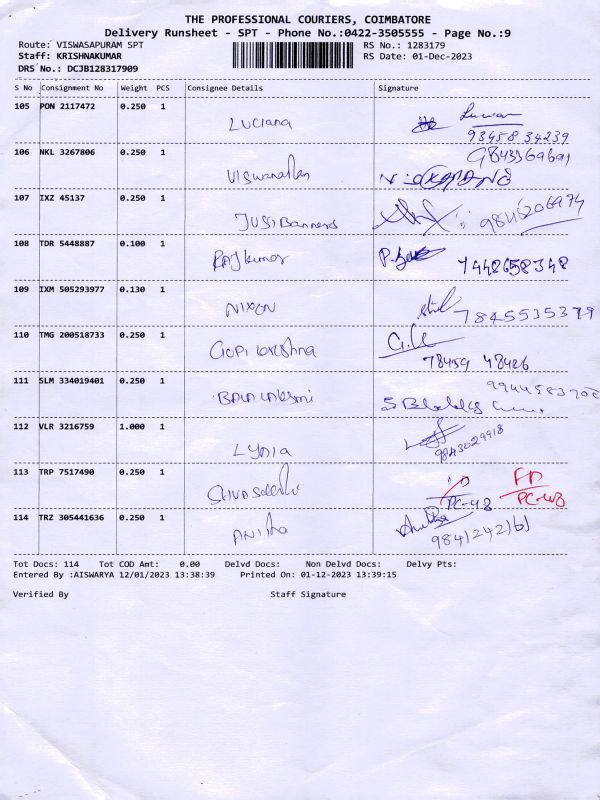 THE PROFESSIONAL COURIERS, COIMBATORE
Delivery Runsheet - SPT - Phone No.:0422-3505555 - Page No.:9
Route: VISWASAPURAM SPT RS No.: 1283179
Staff: KRISHNAKUMAR RS Date: 01-Dec-2023
DRS No.: DCJB128317909
S No Consignment No Weight PCS Consignee Details Signature
105 PON 2117472 0.250 1
Luciana
93458 34239
106 NKL 3267806 0.250 1
Viswanathan
107 IXZ 45137 0.250 1
108 TDR 5448887 0.100 1
Rajkumar 7448658348
109 IXM 505293977 0.130 1
NIXON 7845535379
110 TMG 200518733 0.250 1
Gopi krishna
78459 48426
111 SLM 334019401 0.250 1
112 VLR 3216759 1.000 1
LYDIA 9843029918
113 TRP 7517490 0.250 1
PC-48
114 TRZ 305441636 0.250 1
Anitha
Tot Docs: 114 Tot COD Amt: 0.00 Delvd Docs: Non Delvd Docs: Delvy Pts:
Entered By :AISWARYA 12/01/2023 13:38:39 Printed On: 01-12-2023 13:39:15
Verified By Staff Signature